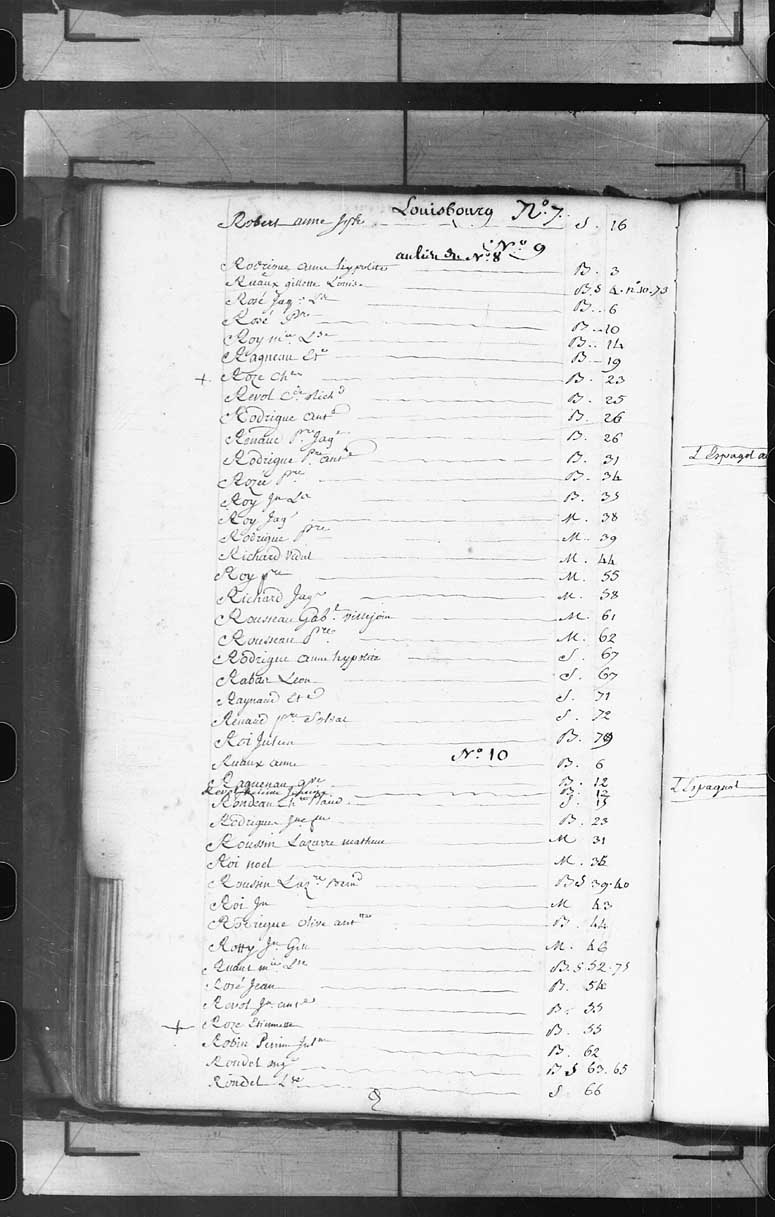 Louisbourg No. 7.
Robert anne Jph S. 16
au lieu du No. 8 No. 9
Rodrigue anne hyppolite B. 3
Ruaux gillette Louise B. S 4. no. 10. 73
Rosé Jaq. Ls B. 6
Rosé pre B. 10
Roy mie Lse B. 14
Ragneau Ete B. 19
+ Roze Chs B. 23
Revol B. 25
Rodrigue ant B. 26
Renaud pre Jaq B. 26
Rodrigue pre ant B. 31
Rozée pre B. 34
Roy Jn Ls B. 35
Roy Jaq M. 38
Rodrigue pre M. 39
Richard Vidal M. 44
Roy pre M. 55
Richard Jaq M. 58
Rousseau Gabl Villejoin M. 61
Rousseau pre M. 62
Rodrigue anne hyppolite S. 67
Raban Leon S. 67
Raynaud Ete S. 71
Renaud pre S. 72
Roi Julien B. 79
No. 10
Ruaux anne B. 6
Raguenau B. 12
B. 12
Rondeau S. 15
Rodrigue B. 23
Roussin Lazarre mathieu M 31
Roi noel M. 36
Roussin Lazre Bernd B S 39. 40
Roi Jn M 43
Rodrigue olive B. 44
Rotty Jn M. 46
Ruaux mie Lse B. S. 52. 75
Rosé Jean B. 54
Revol Jn B. 55
+ Roze Etiennette B. 55
Robin Perrine B. 62
Rondel B S 63. 65
Rondel Lse S. 66
L'Espagol
L'Espagnol